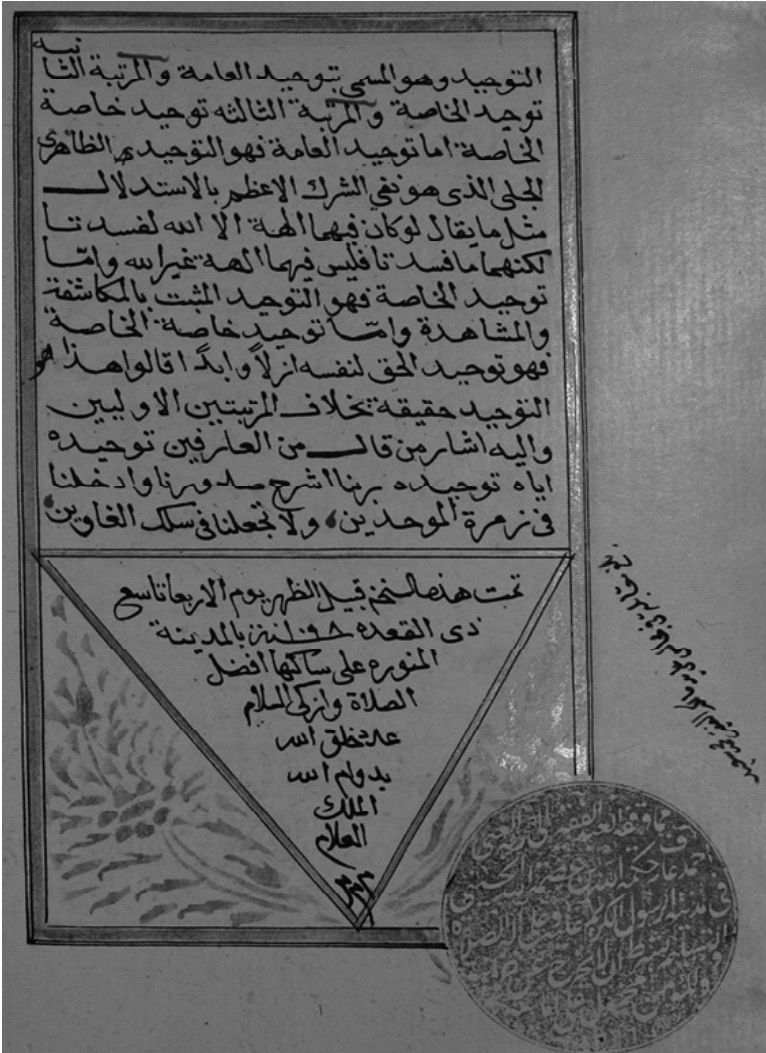 التوحيد وهو المسمى بتوحيد العامة والمرتبة الثانيه
توحيد الخاصة والمرتبة الثالثه توحيد خاصة
الخاصة اما توحيد العامة فهو التوحيد الظاهرى
الجلى الذى هو نفي الشرك الاعظم بالاستدلال
مثل ما يقال لو كان فيهما الهة الا الله لفسدتا
لكنهما ما فسدتا فليس فيهما الهة غير الله وامّا
توحيد الخاصة فهو التوحيد المثبت بالمكاشفة
والمشاهدة وامّا توحيد خاصة الخاصة
فهو توحيد الحق لنفسه ازلاً وابدًا قالوا هذا هو
التوحيد حقيقة بخلاف المرتبتين الاوليين
واليه اشار من قال من العارفين توحيده
اياه توحيده ربنا اشرح صدورنا وادخلنا
فى زمرة الموحدين ولا تجعلنا فى سلك الغاوين
تمت هذه النسخه قبيل الظهر يوم الاربعا تاسع
ذى القعده بالمدينة
المنوره على ساكنها افضل
الصلاة وازكى السلام
عدد خلق الله
بدوام الله
الملك
العلام
مما وقفه العبد الفقير الى ربه الغنى
احمد عارف حكمة الله بن عصمة الله الحسينى
فى مدينة الرسول الكريم عليه وعلى آله الصلاة
والتسليم بشرط ان لا يخرج عن خزانته